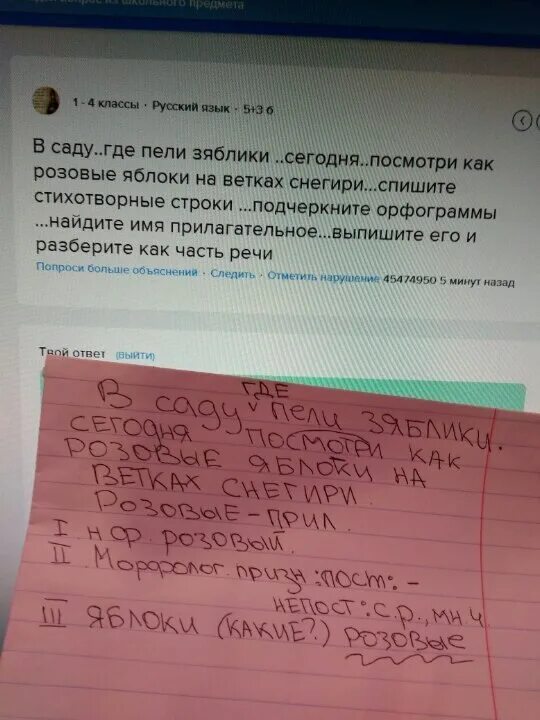 из школьного предмета
1 - 4 классы · Русский язык · 5+3 б
В саду..где пели зяблики ..сегодня..посмотри как
розовые яблоки на ветках снегири...спишите
стихотворные строки ...подчеркните орфограммы
...найдите имя прилагательное...выпишите его и
разберите как часть речи
Попроси больше объяснений · Следить · Отметить нарушение 45474950 5 минут назад
Твой ответ (выйти)
ГДЕ
В САДУ ˅ ПЕЛИ ЗЯБЛИКИ.
СЕГОДНЯ ПОСМОТРИ КАК
РОЗОВЫЕ ЯБЛОКИ НА
ВЕТКАХ СНЕГИРИ.
РОЗОВЫЕ – ПРИЛ.
I Н.ФР. РОЗОВЫЙ.
II МОРФОЛОГ. ПРИЗН: ПОСТ: -
НЕПОСТ: С.Р., МН.Ч.
III ЯБЛОКИ (КАКИЕ?) РОЗОВЫЕ